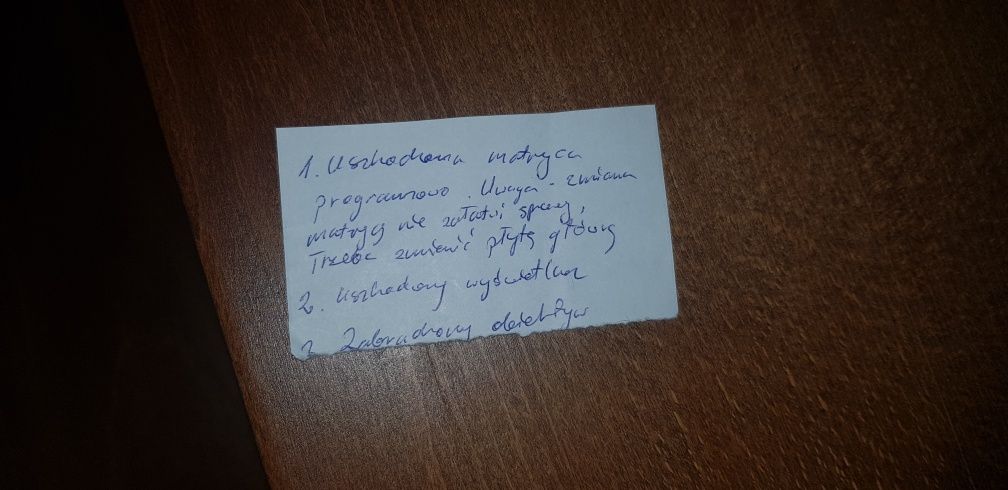 1. Uszkodzona matryca
programowo. Uwaga - zmiana
matrycy nie załatwi sprawy,
Trzeba zmienić płytę główną
2. uszkodzony wyświetlacz
3. Zabrudzony obiektyw